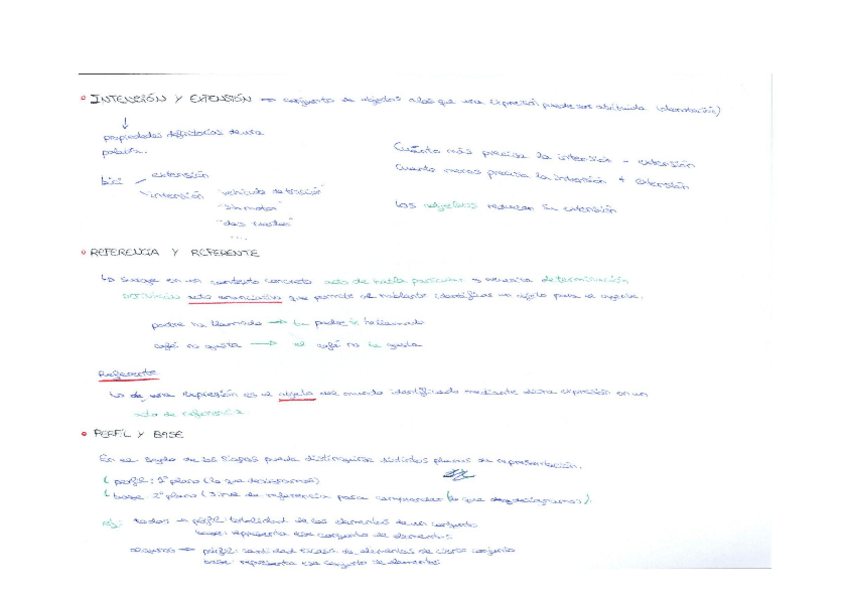 INTENSIÓN Y EXTENSIÓN → conjunto de objetos a los que una expresión puede ser atribuida (denotación)
↓
propiedades definitorias de una
palabra.
Cuánto más precisa la intensión - extensión
Cuanto menos precisa la intensión + extensión
bici extensión
intensión "vehículo de tracción"
"sin motor"
"dos ruedas"
....
Los adjetivos reducen su extensión
REFERENCIA Y REFERENTE
Surge en un contexto concreto acto de habla particular y necesita determinación
DEFINICIÓN acto enunciativo que permite al hablante identificar un objeto para el oyente.
padre ha llamado → tu padre te ha llamado
café no gusta → el café no le gusta
Referente
Lo de una expresión es el objeto del mundo identificado mediante dicha expresión en un
acto de referencia.
PERFIL Y BASE
En el de los signos puede distinguirse distintos planos de representación.
perfil: 1º plano (lo que designamos)
base: 2º plano (sirve de referencia para comprender lo que designamos).
ej: todos → perfil: totalidad de los elementos de un conjunto
base: representa ese conjunto de elementos
algunos → perfil: cantidad escasa de elementos de cierto conjunto
base: representa ese conjunto de elementos